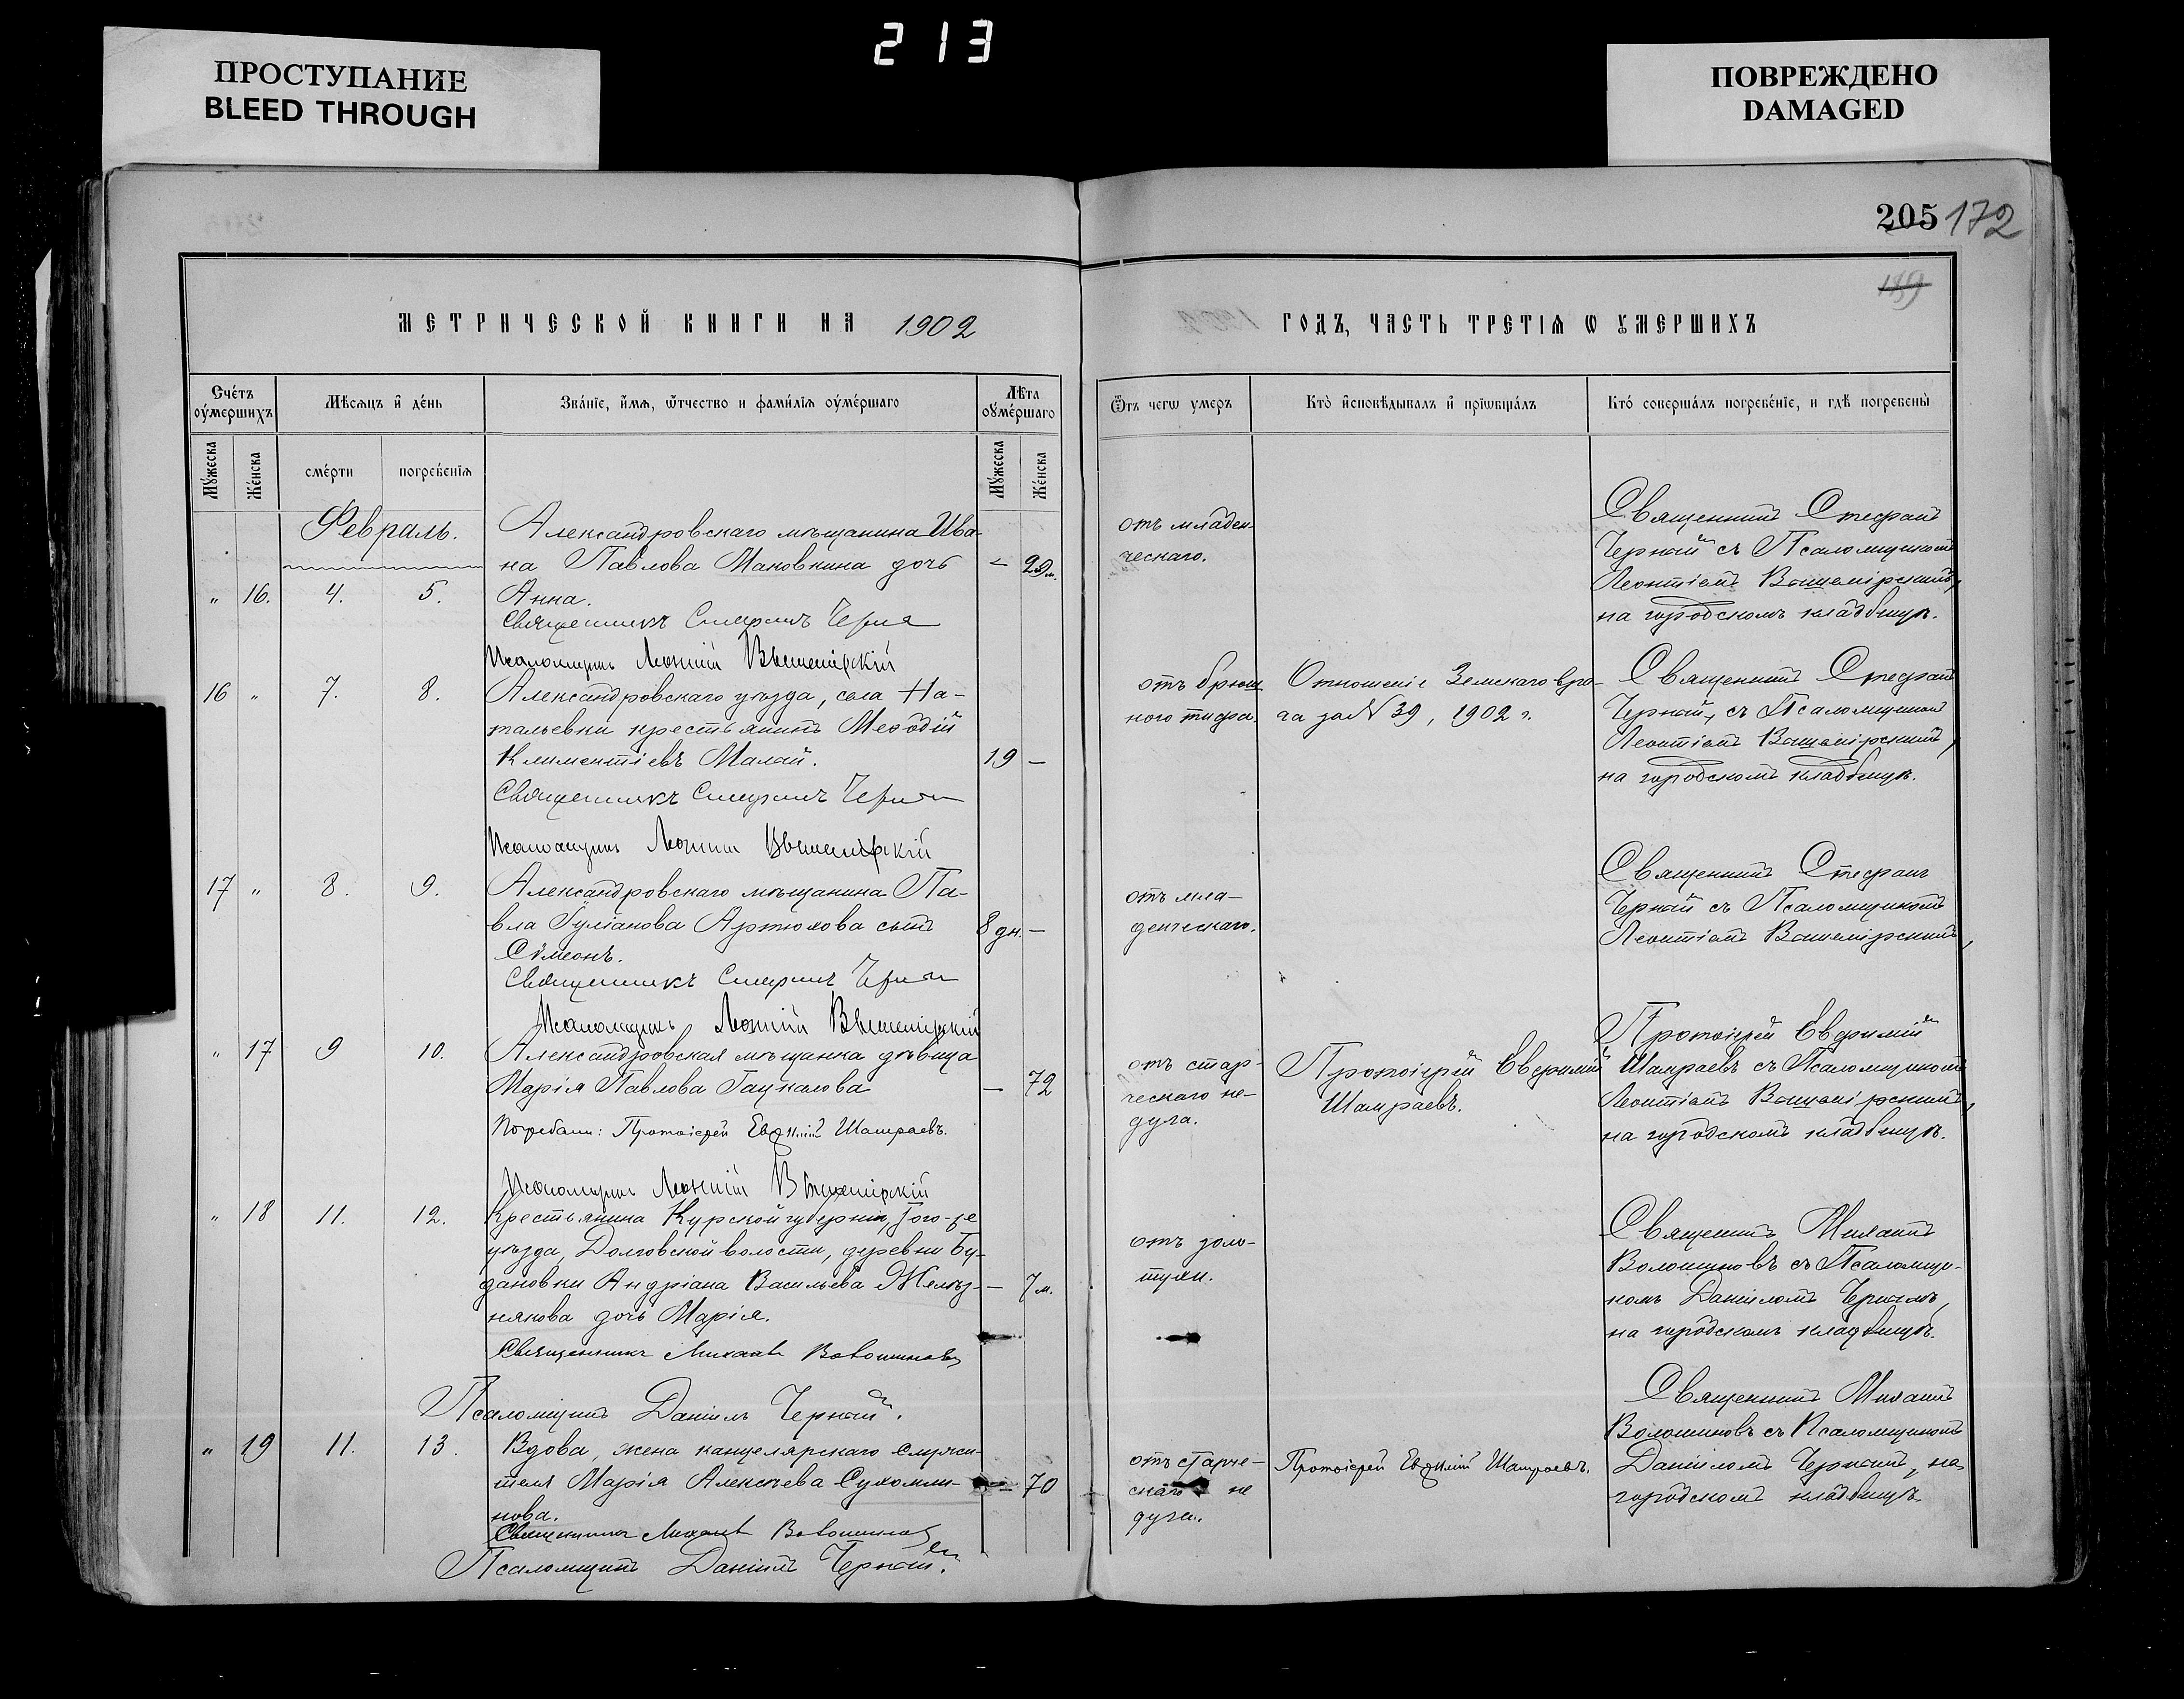 213
ПРОСТУПАНИЕ
BLEED THROUGH
ПОВРЕЖДЕНО
DAMAGED
205 172
189
МЕТРИЧЕСКОЙ КНИГИ НА 1902
ГОДЪ, ЧАСТЬ ТРЕТІѦ Ѡ ОУМЕРШИХЪ
Сче́тъ оу҆ме́ршихъ
Мѣ́сѧцъ и҆ де́нь
Зва́нїе, и҆́мѧ, ѿтчество и фами́лїѧ оу҆ме́ршаго
Лѣ́та оу҆ме́ршаго
Ѿ чегѡ̀ умеръ
Кто̀ и҆сповѣ́дывалъ и҆ прїѡбща́лъ
Кто́ соверша́лъ погребе́нїе, и гдѣ̀ погребены̀
Му́жеска
Же́нска
сме́рти
погребе́нїѧ
Му́жеска
Же́нска
Февраль.
Александровскаго мѣщанина Ива-
на Павлова Маковкина дочь
— 2 9 м.
" 16. 4. 5. Анна.
Священникъ Стефанъ Черна
Псаломщикъ Леонтій Вышемірскій
отъ младен-
ческаго.
Священникъ Стефанъ
Черный съ Псаломщикомъ
Леонтіемъ Вышемірскимъ,
на городскомъ кладбищѣ.
16 " 7. 8. Александровскаго уѣзда, села На-
тальевки крестьянинъ Меѳодій
Климентіевъ Малай. 19 —
Священникъ Стефанъ Черный
Псаломщикъ Леонтій Вышемірскій
отъ брюш
ного тифа.
Отношеніе Земскаго вра-
ча за № 39, 1902 г.
Священникъ Стефанъ
Черный, съ Псаломщикомъ
Леонтіемъ Вышемірскимъ,
на городскомъ кладбищѣ.
17 " 8. 9. Александровскаго мѣщанина Па-
вла Іуліанова Артюхова сынъ 8 дн. —
Сѵмеонъ.
Священникъ Стефанъ Черный
Псаломщикъ Леонтій Вышемірскій
отъ мла-
денческаго.
Священникъ Стефанъ
Черный съ Псаломщикомъ
Леонтіемъ Вышемірскимъ,
" 17 9 10. Александровская мѣщанка дѣвица
Марія Павлова Гацкалова — 72
Погребали: Протоіерей Евѳимій Шамраевъ.
Псаломщикъ Леонтій Вышемірскій
отъ стар-
ческаго не-
дуга.
Протоіерей Евфимій
Шамраевъ.
Протоіерей Евфимій
Шамраевъ съ Псаломщикомъ
Леонтіемъ Вышемірскимъ,
на городскомъ кладбищѣ.
" 18 11. 12. Крестьянина Курской губерніи, того-же
уѣзда, Долговской волости, деревни Бу-
дановки Андріана Васильева Желѣз- — 7 м.
някова дочь Марія.
Священникъ Михаилъ Волошиновъ
Псаломщикъ Даніилъ Черный.
отъ золо-
тухи.
Священникъ Михаилъ
Волошиновъ съ Псаломщи-
комъ Даніиломъ Чернымъ,
на городскомъ кладбищѣ.
" 19 11. 13. Вдова, жена канцелярскаго служи-
теля Марія Алексѣева Сухомли- — 70
нова.
Священникъ Михаилъ Волошиновъ
Псаломщикъ Даніилъ Черный.
отъ старче-
скаго не
дуга.
Протоіерей Евѳимій Шамраевъ.
Священникъ Михаилъ
Волошиновъ съ Псаломщикомъ
Даніиломъ Чернымъ, на
городскомъ кладбищѣ.